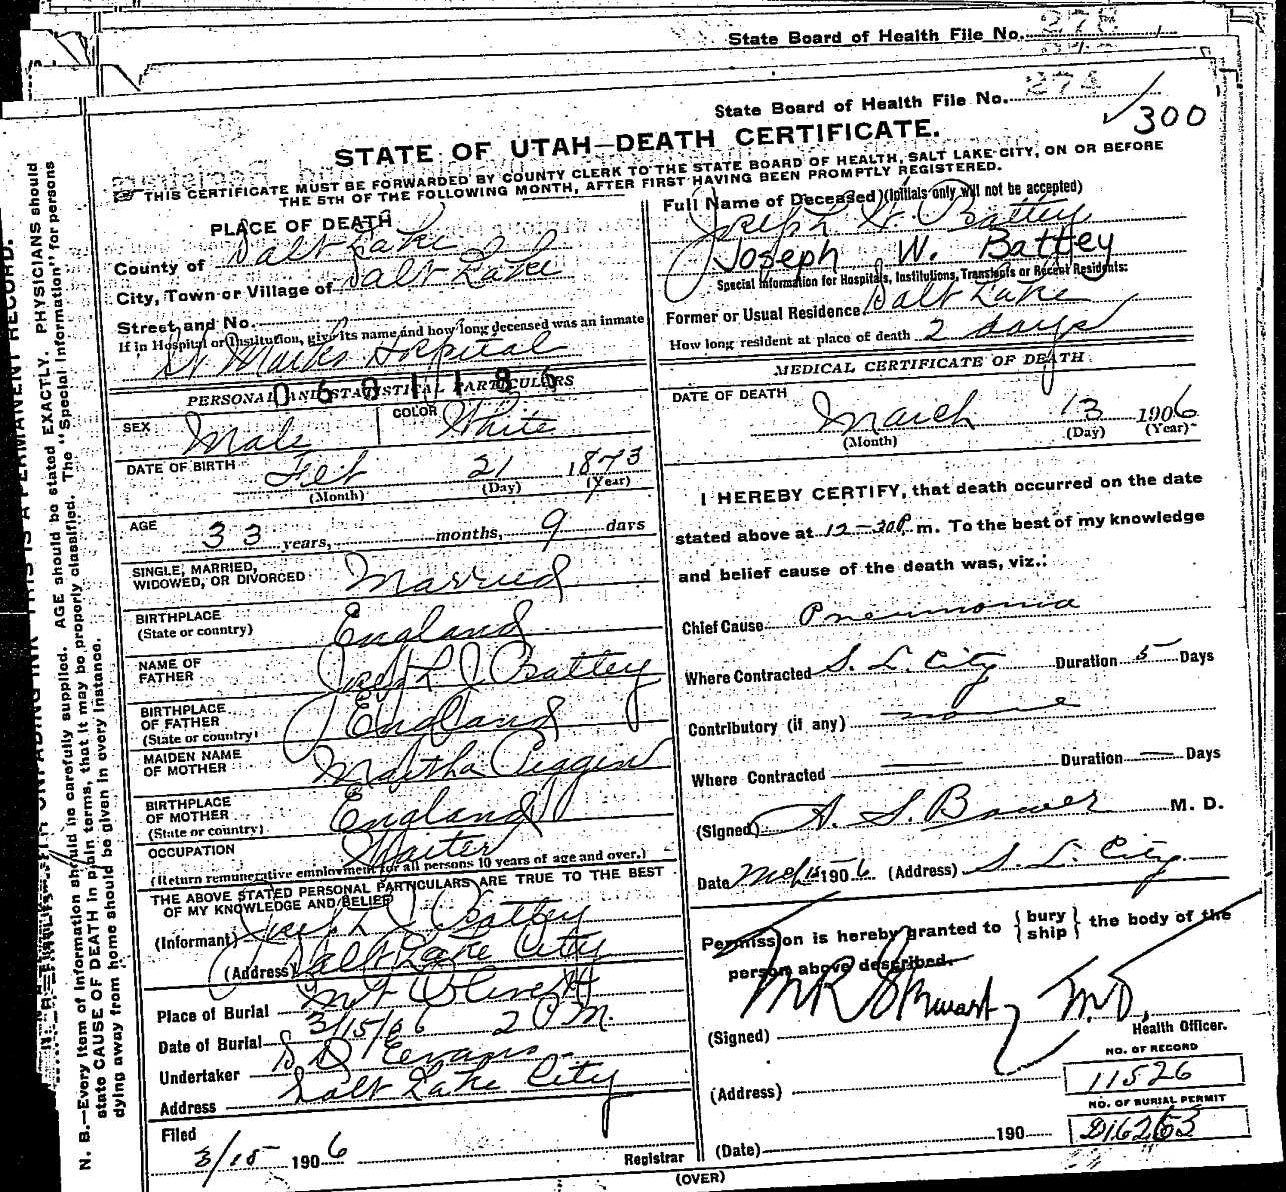 State Board of Health File No. 275
State Board of Health File No. 274
300
STATE OF UTAH—DEATH CERTIFICATE.
THIS CERTIFICATE MUST BE FORWARDED BY COUNTY CLERK TO THE STATE BOARD OF HEALTH, SALT LAKE CITY, ON OR BEFORE
THE 5TH OF THE FOLLOWING MONTH, AFTER FIRST HAVING BEEN PROMPTLY REGISTERED.
PLACE OF DEATH
County of Salt Lake
City, Town or Village of Salt Lake
Street and No.
If in Hospital or Institution, give its name and how long deceased was an inmate
St Marks Hospital
0601186
PERSONAL AND STATISTICAL PARTICULARS
SEX Male COLOR White
DATE OF BIRTH Feb 21 1873
(Month) (Day) (Year)
AGE 33 years, months, 9 days
SINGLE, MARRIED,
WIDOWED, OR DIVORCED Married
BIRTHPLACE
(State or country) England
NAME OF
FATHER Joseph J. Battey
BIRTHPLACE
OF FATHER
(State or country) England
MAIDEN NAME
OF MOTHER Martha
BIRTHPLACE
OF MOTHER
(State or country) England
OCCUPATION Waiter
(Return remunerative employment for all persons 10 years of age and over.)
THE ABOVE STATED PERSONAL PARTICULARS ARE TRUE TO THE BEST
OF MY KNOWLEDGE AND BELIEF
(Informant) Joseph J. Battey
(Address) Salt Lake City
Place of Burial Mt Olivett
Date of Burial 3/15/06 2 P M
Undertaker S D Evans
Address Salt Lake City
Filed
3/15 1906 Registrar
Full Name of Deceased (Initials only will not be accepted)
Joseph W. Battey
Joseph W. Battey
Special Information for Hospitals, Institutions, Transients or Recent Residents:
Former or Usual Residence Salt Lake
How long resident at place of death 2 days
MEDICAL CERTIFICATE OF DEATH
DATE OF DEATH
March 13 1906
(Month) (Day) (Year)
I HEREBY CERTIFY, that death occurred on the date
stated above at 12-30 P. m. To the best of my knowledge
and belief cause of the death was, viz.:
Chief Cause Pneumonia
Where Contracted S. L. City Duration 5 Days
Contributory (if any) none
Where Contracted — Duration — Days
(Signed) A. S. Bower M. D.
Date Mch 15 1906 (Address) S. L. City
Permission is hereby granted to { bury ship } the body of the
person above described.
M R Stewart M.D.
(Signed) Health Officer.
(Address)
NO. OF RECORD
11526
NO. OF BURIAL PERMIT
D16263
(Date) 190
(OVER)
N. B.—Every item of information should be carefully supplied. AGE should be stated EXACTLY. PHYSICIANS should
state CAUSE OF DEATH in plain terms, that it may be properly classified. The "Special Information" for persons
dying away from home should be given in every instance.
UNFADING INK THIS IS A PERMANENT RECORD.